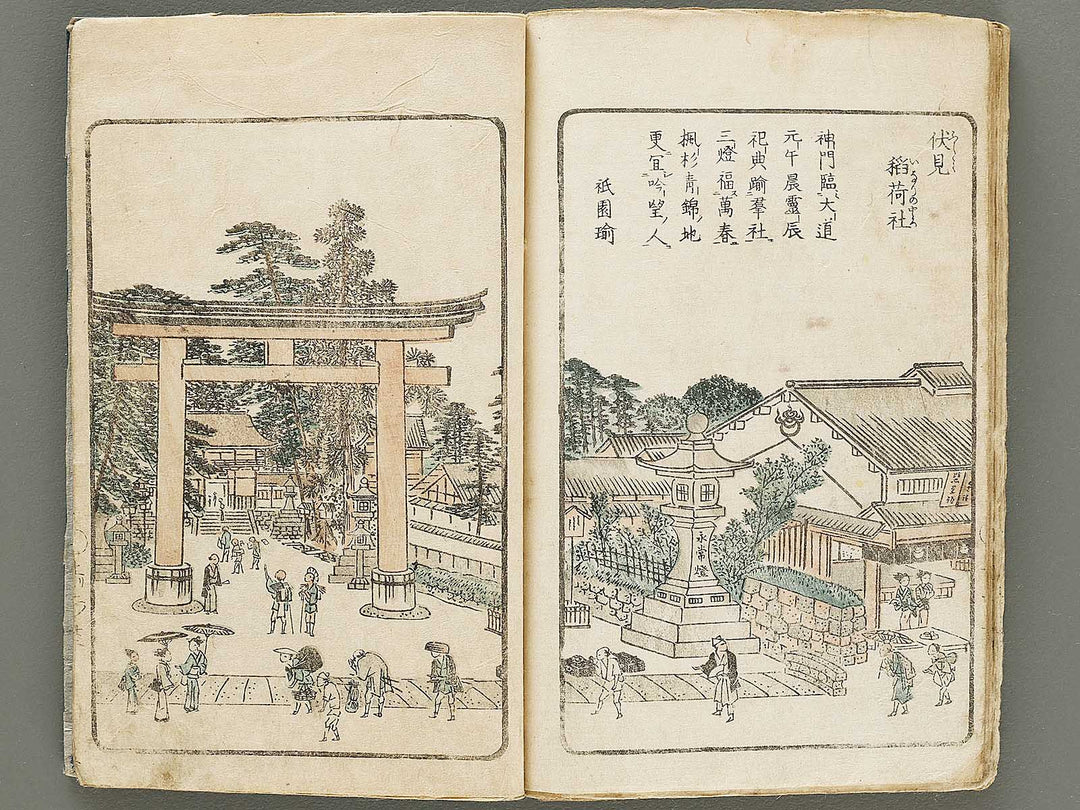 伏見
稻荷社
神門臨大道
元午晨靈辰
祀典踰羣社
三燈福萬春
楓杉青錦地
更冝吟望人
祇園瑜
永常燈